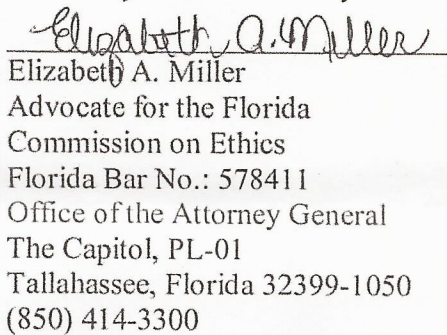 Elizabeth A. Miller
Elizabeth A. Miller
Advocate for the Florida
Commission on Ethics
Florida Bar No.: 578411
Office of the Attorney General
The Capitol, PL-01
Tallahassee, Florida 32399-1050
(850) 414-3300